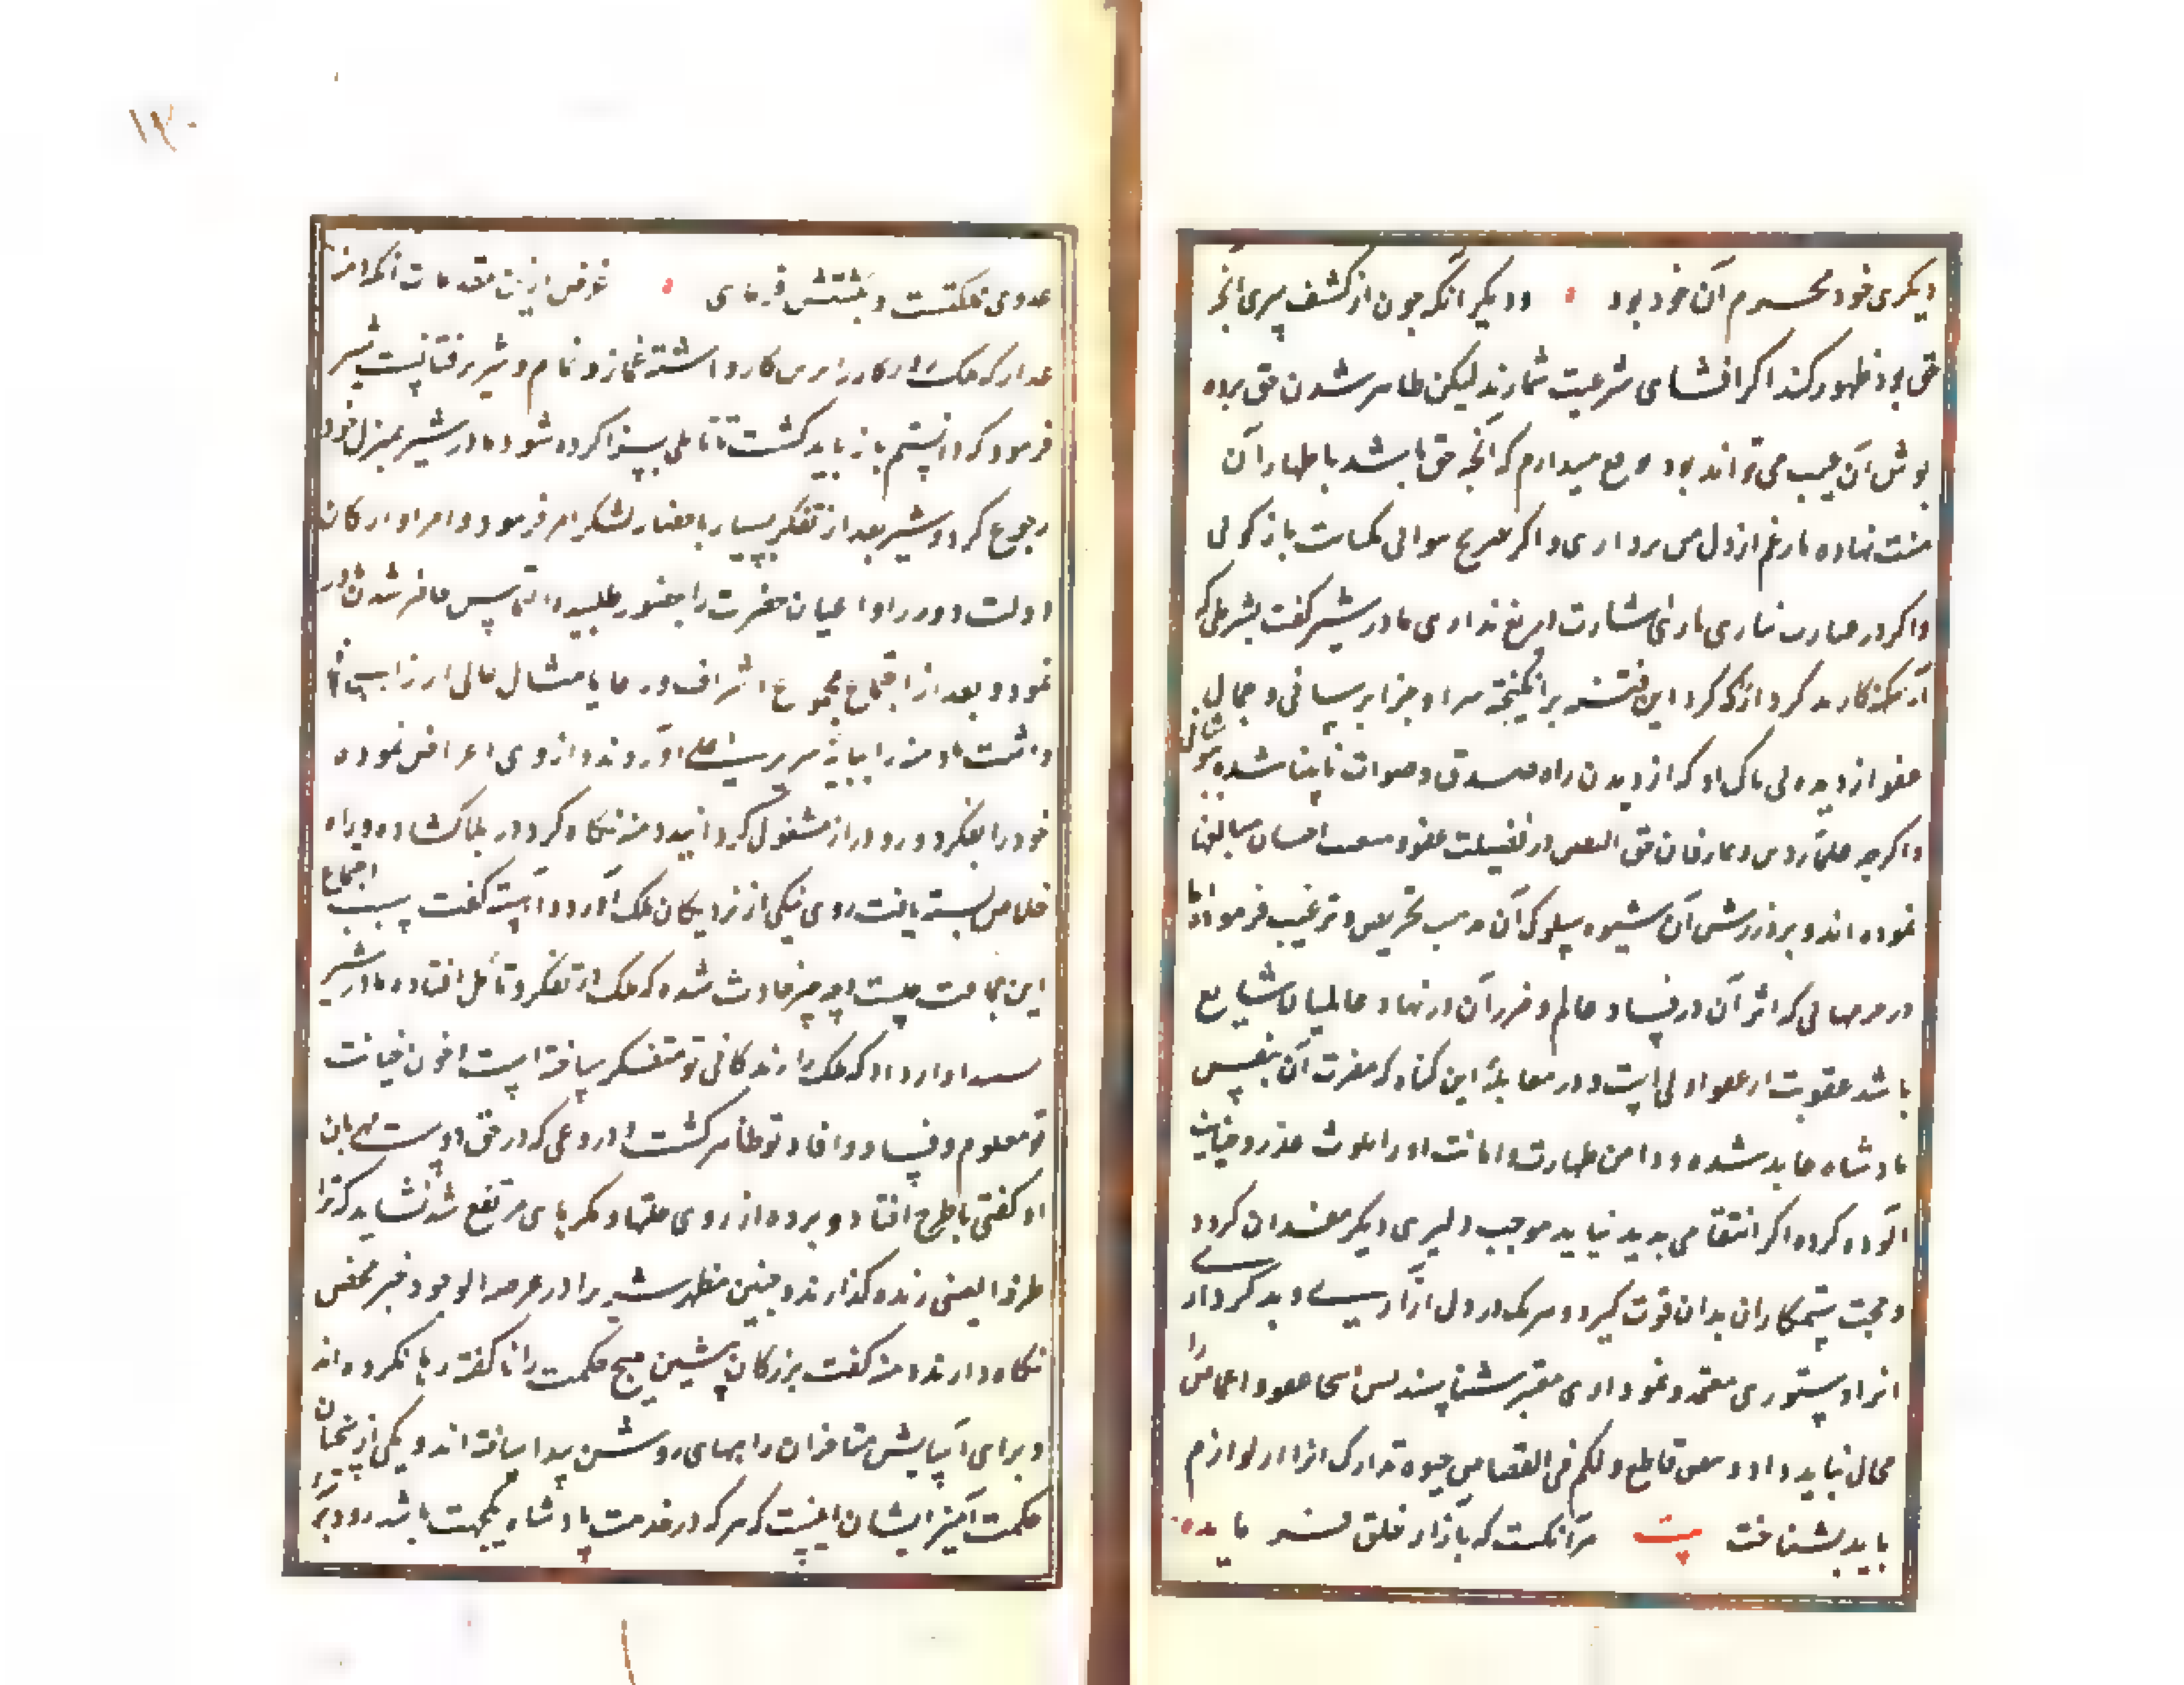 دیگری خود محسروم آن خود بود ۰ ودیگر آنکه چون از کشف سری آنچه
حق بود ظهور کند اگر افشای شرعیت شمارند لیکن ظاهر شدن حق پرده
پوش آن عیب می تواند بود و میدارم که آنچه حق باشد باظهار آن
منت نهاده بار غم از دل من برداری و اگر صریح نوانی بکنایت بازگوئی
و اگر در عبارت نیاری باری اشارت دریغ نداری مادر شیر گفت بشرطی که
آن مکار بدکردار که کرد این فتنه برانگیخته سزا و جزا برسانی و جمال
عفو از دیده بی باک او که از دیدن راه صدق و صواب نابینا شده بپوشانی
و اگرچه علمای دین و عارفان حق الیقین در فضیلت عفو و احسان مبالغها
نموده اند و بر ورزش آن شیوه و سلوک آن تحریص و ترغیب فرموده اما
در جرمهایی که اثر آن در فساد عالم و ضرر آن در نهاد عالمیان شایع
باشد عقوبت از عفو اولی است و در مقابله این گناه که مضرت آن بنفس
پادشاه عاید شده و دامن طهارت و امانت او را بلوث غدر و خیانت
آلوده کرده اگر انتقامی پدید نیاید موجب دلیری دیگر مفسدان گردد
و حجت ستمکاران بدان قوت گیرد و هر یک در دل آزاری و بدکرداری
آنرا دستوری معتمد و نموداری معتبر شناسند پس اینجا عفو و اغماض را
مجال نباید داد و نص قاطع ولکم فی القصاص حیوة تدارک آنرا از لوازم
باید شناخت بیت هر آنکست که بآزار خلق فرماید
عدوی مملکتست و بکشتنش فرمای ۰ غرض ازین مقدمات آنکه دمنه
غدار که ملک را بر کار داشته غماز و نمام و شریر و فتانست شیر
فرمود که دانستم باز باید گشت تا تأملی بسزا کرده شود مادر شیر بمنزل خود
رجوع کرد و شیر بعد از تفکر بسیار باحضار لشکر امر فرمود و امرا و ارکان
دولت و وزرا و اعیان حضرت را بحضور طلبیده و التماس حاضر شدن مادر
نمود و بعد از اجتماع مجموع اشراف و رعایا مثال عالی ارزانی
داشت تا دمنه را بپایه سریر اعلی آوردند و از وی اعراض نموده
خود را بفکر دور و دراز مشغول گردانید دمنه نگاه کرد در بلا گشاده و راه
خلاص بسته یافت روی بیکی از نزدیکان ملک آورد و آهسته گفت سبب اجتماع
این جماعت چیست و چه چیز حادث شده که ملک در تفکر و تأمل افتاده مادر شیر
او آواز داد که ملک را زندگانی تو متفکر ساخته است و چون خیانت
تو معلوم و فساد و افساد تو ظاهر گشت و دروغی که در حق دوست مهربان
او گفتی باطرح افتاد و پرده از روی حیلتها و مکرهای مرتفع شد نشاید که ترا
طرفة العینی زنده گذارند و چنین مظهر شر را در عرصه الوجود خیر محض
نگاه دارند دمنه گفت بزرگان پیشین هیچ حکمت را ناگفته رها نکرده اند
و برای آسایش متأخران راههای روشن پیدا ساخته اند و یکی از سخنان
حکمت آمیز ایشان اینست که هر که در خدمت پادشاه یکجهت باشد زود
۱۳۰